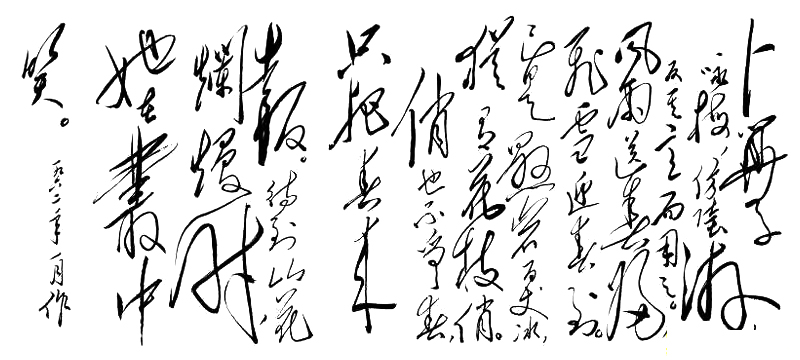 卜算子
咏梅,仿陆游
反其意而用之。
风雨送春归,
飞雪迎春到。
已是悬崖百丈冰,
犹有花枝俏。
俏也不争春,
只把春来
报。待到山花
爛熳时,
她在叢中
笑。
一九六二年一月作